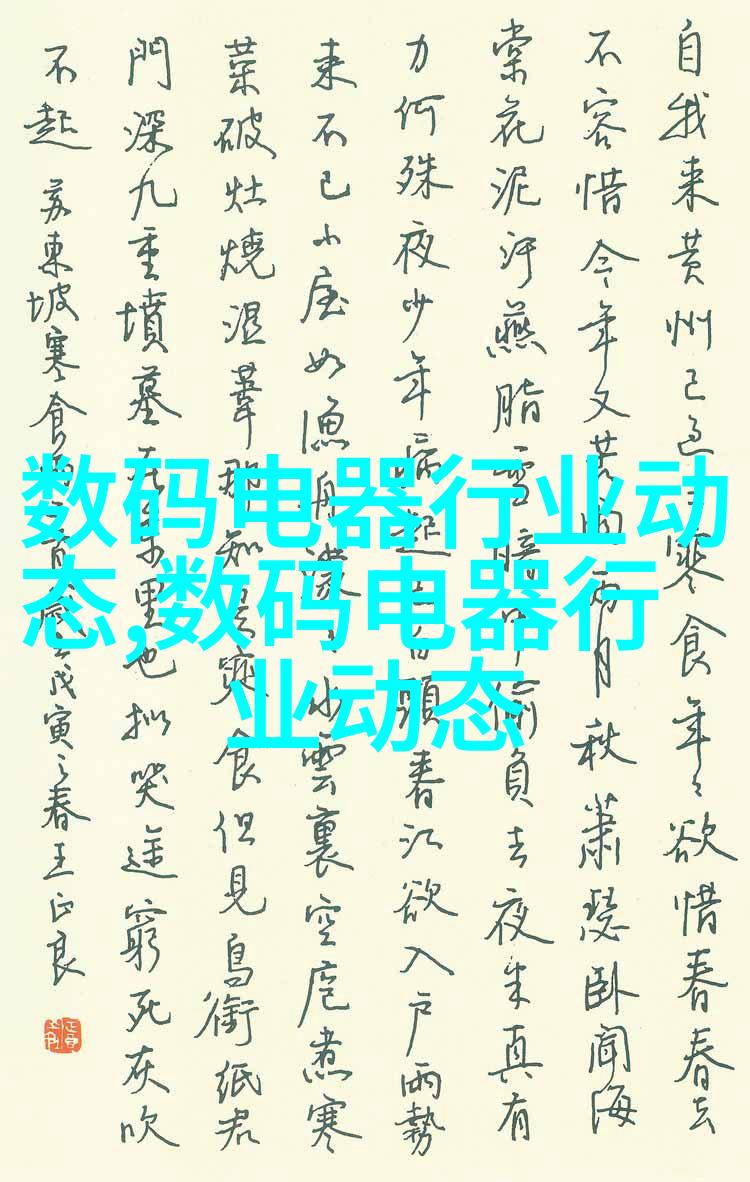 自我来黄州已过三寒食年々欲惜春春去
不容惜今年又苦雨两月秋萧瑟卧闻海
棠花泥汙燕脂雪暗中偷负去夜半真有
力何殊夜少年病起白頭春江欲入户雨勢
来不已小屋如渔舟濛々水雲裏空庖煮寒
菜破灶燒湿葦那知是寒食但見烏銜纸君
門深九重墳墓在万里也拟哭途窮死灰吹
不起 苏東坡寒食雨二首 戊寅之春王正良
数码电器行业动
态,数码电器行
业动态